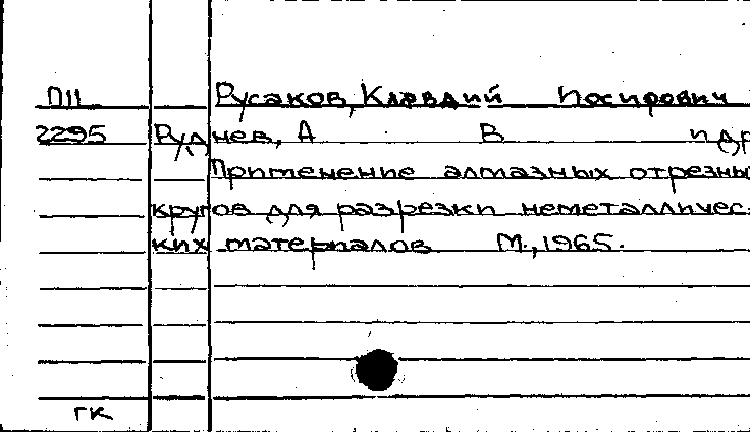 П11 Русаков, Клавдий Иосифович
2295 Руднев, А В и др
Применение алмазных отрезны
кругов для разрезки неметалличес-
ких материалов М., 1965.
ГК